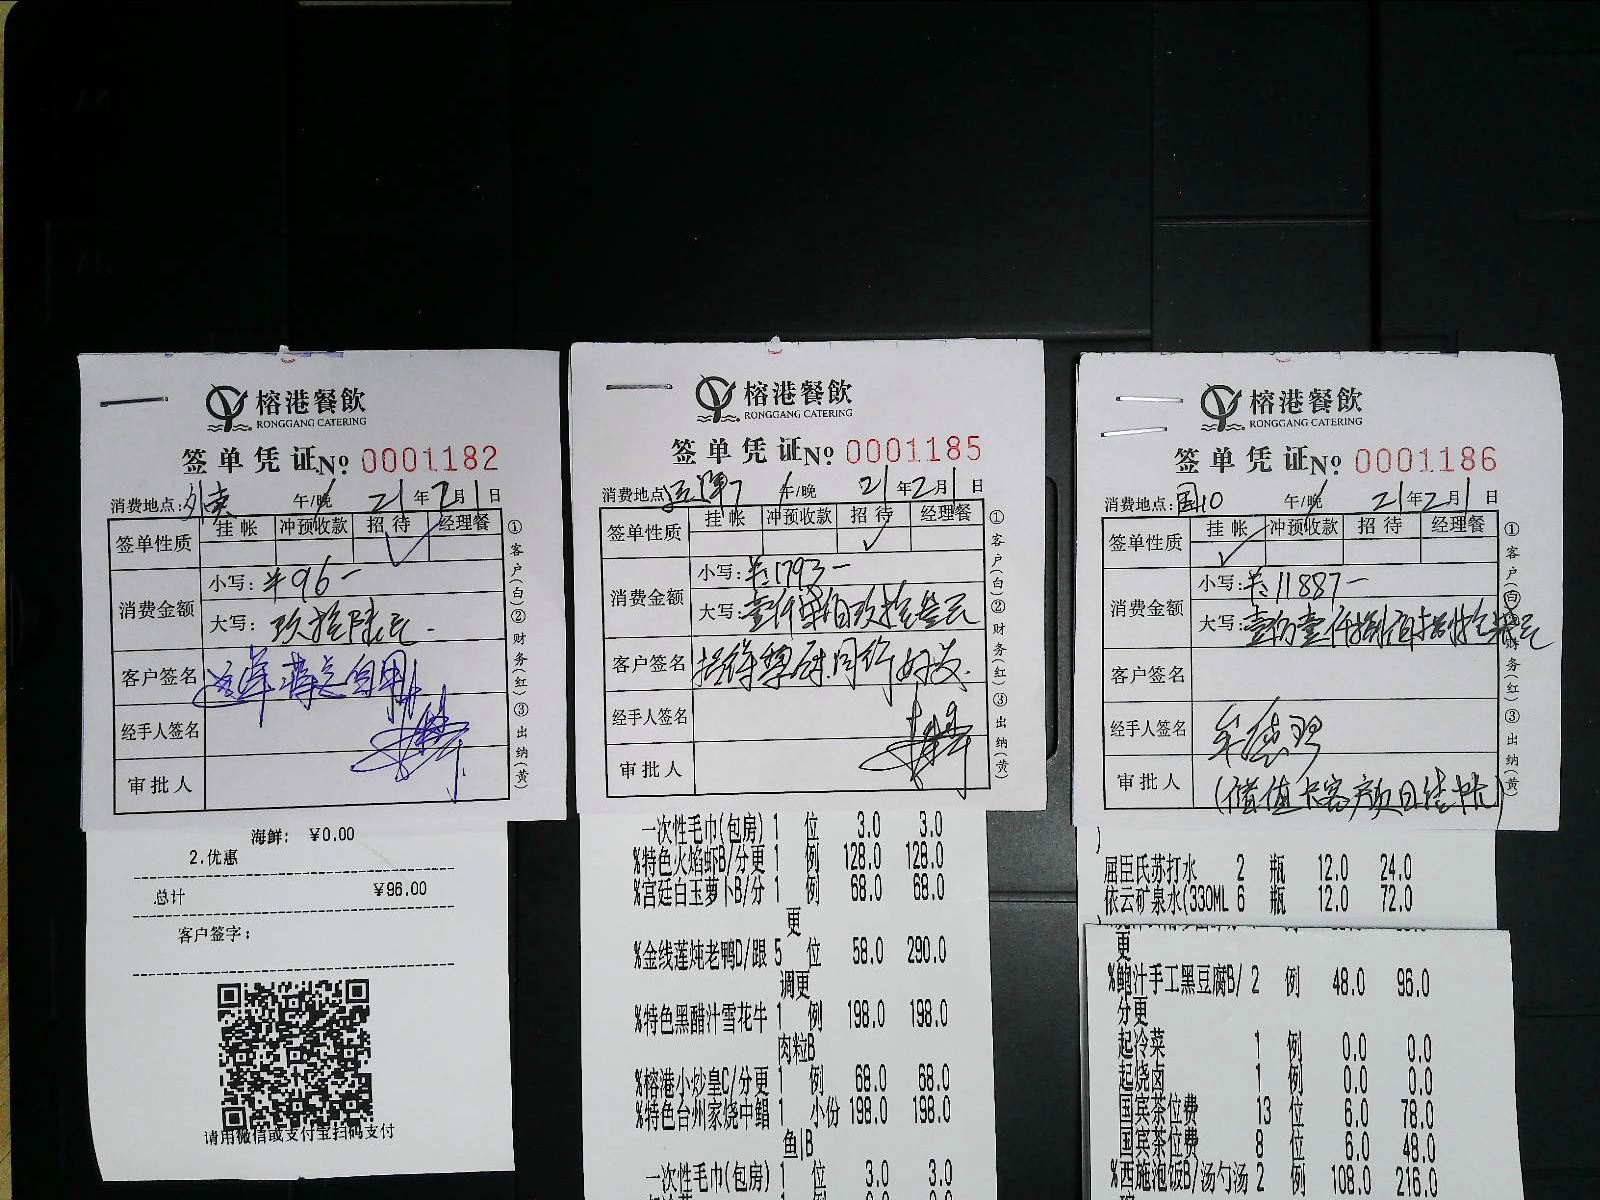 榕港餐飲
RONGGANG CATERING
签单凭证 No 0001182
消费地点: 外卖 午/晚 21年2月1日
签单性质 挂帐 冲预收款 招待 经理餐
消费金额 小写: ¥96一
大写: 玖拾陆元.
客户签名
经手人签名
审批人
①客户(白)②财务(红)③出纳(黄)
海鲜: ¥0.00
2.优惠
总计 ¥96.00
客户签字:
请用微信或支付宝扫码支付
榕港餐飲
RONGGANG CATERING
签单凭证 No 0001185
消费地点: 7 午/晚 21年2月1日
签单性质 挂帐 冲预收款 招待 经理餐
消费金额 小写: ¥:1793一
大写: 壹仟柒佰玖拾叁元
客户签名 招待
经手人签名
审批人
①客户(白)②财务(红)③出纳(黄)
一次性毛巾(包房) 1 位 3.0 3.0
%特色火焰虾B/分更 1 例 128.0 128.0
%宫廷白玉萝卜B/分 1 例 68.0 68.0
更
%金线莲炖老鸭D/跟 5 位 58.0 290.0
调更
%特色黑醋汁雪花牛 1 例 198.0 198.0
肉粒B
%榕港小炒皇C/分更 1 例 68.0 68.0
%特色台州家烧中鲳 1 小份 198.0 198.0
鱼|B
一次性毛巾(包房) 1 位 3.0 3.0
榕港餐飲
RONGGANG CATERING
签单凭证 No 0001186
消费地点: 国10 午/晚 21年2月1日
签单性质 挂帐 冲预收款 招待 经理餐
消费金额 小写: ¥:11887一
大写: 壹万壹仟捌佰捌拾柒元
客户签名
经手人签名
审批人 (储值卡客户次日结帐)
①客户(白)②财务(红)③出纳(黄)
)
屈臣氏苏打水 2 瓶 12.0 24.0
依云矿泉水(330ML 6 瓶 12.0 72.0
)
更
%鲍汁手工黑豆腐B/ 2 例 48.0 96.0
分更
起冷菜 1 例 0.0 0.0
起烧卤 1 例 0.0 0.0
国宾茶位费 13 位 6.0 78.0
国宾茶位费 8 位 6.0 48.0
%西施泡饭B/汤勺汤 2 例 108.0 216.0